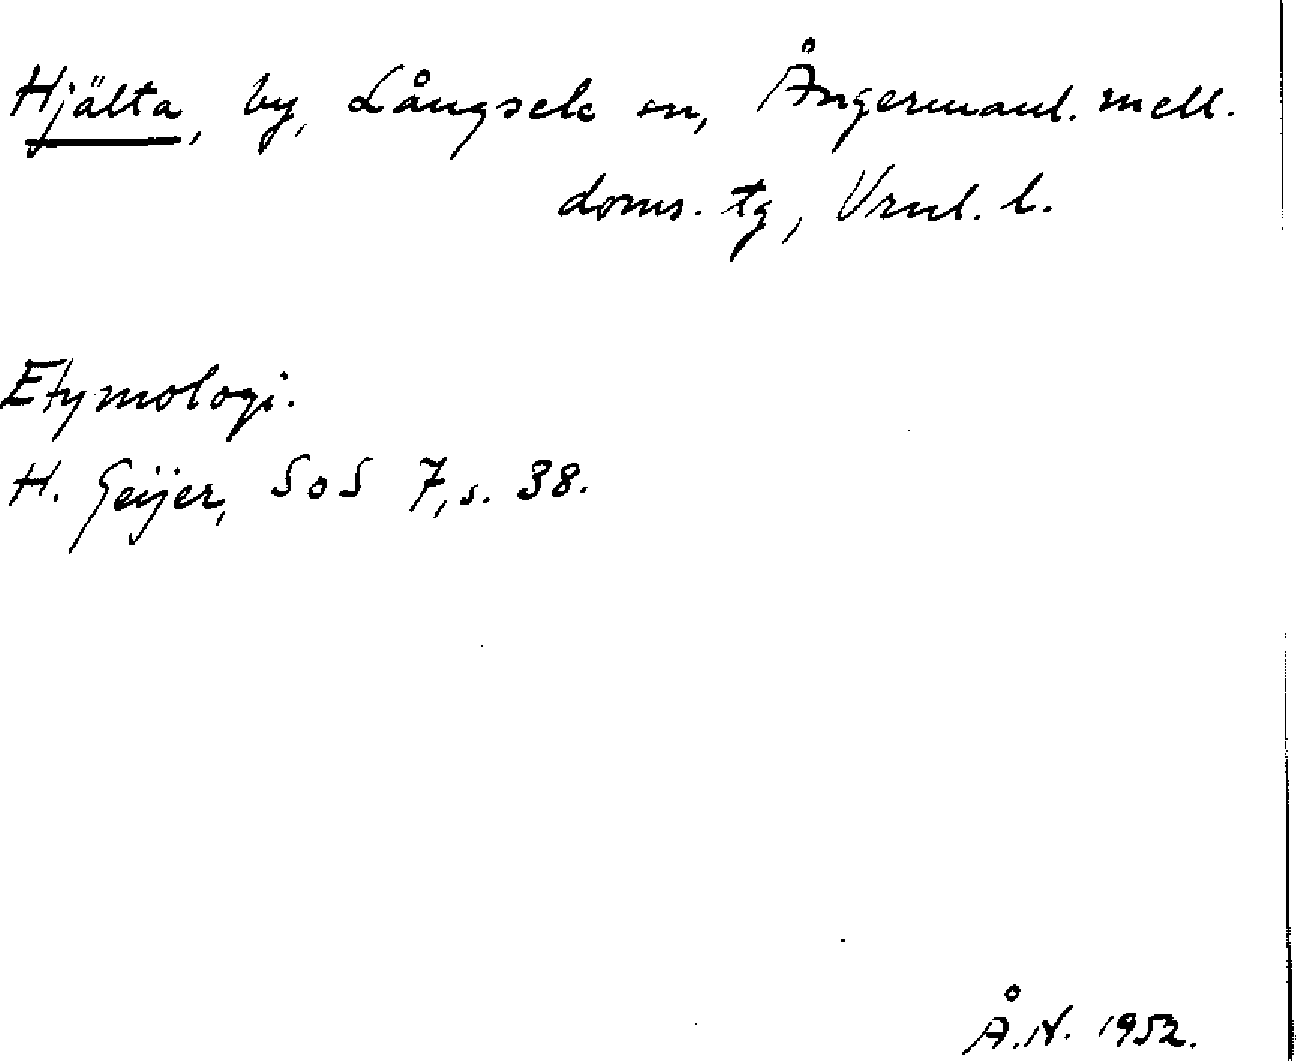 Hjälta, by, Långsele sn, Ångermanl. mell.
doms. tg, Vrnl. l.
Etymologi.
H. Geijer, SoS 7, s. 38.
Å.N. 1952.